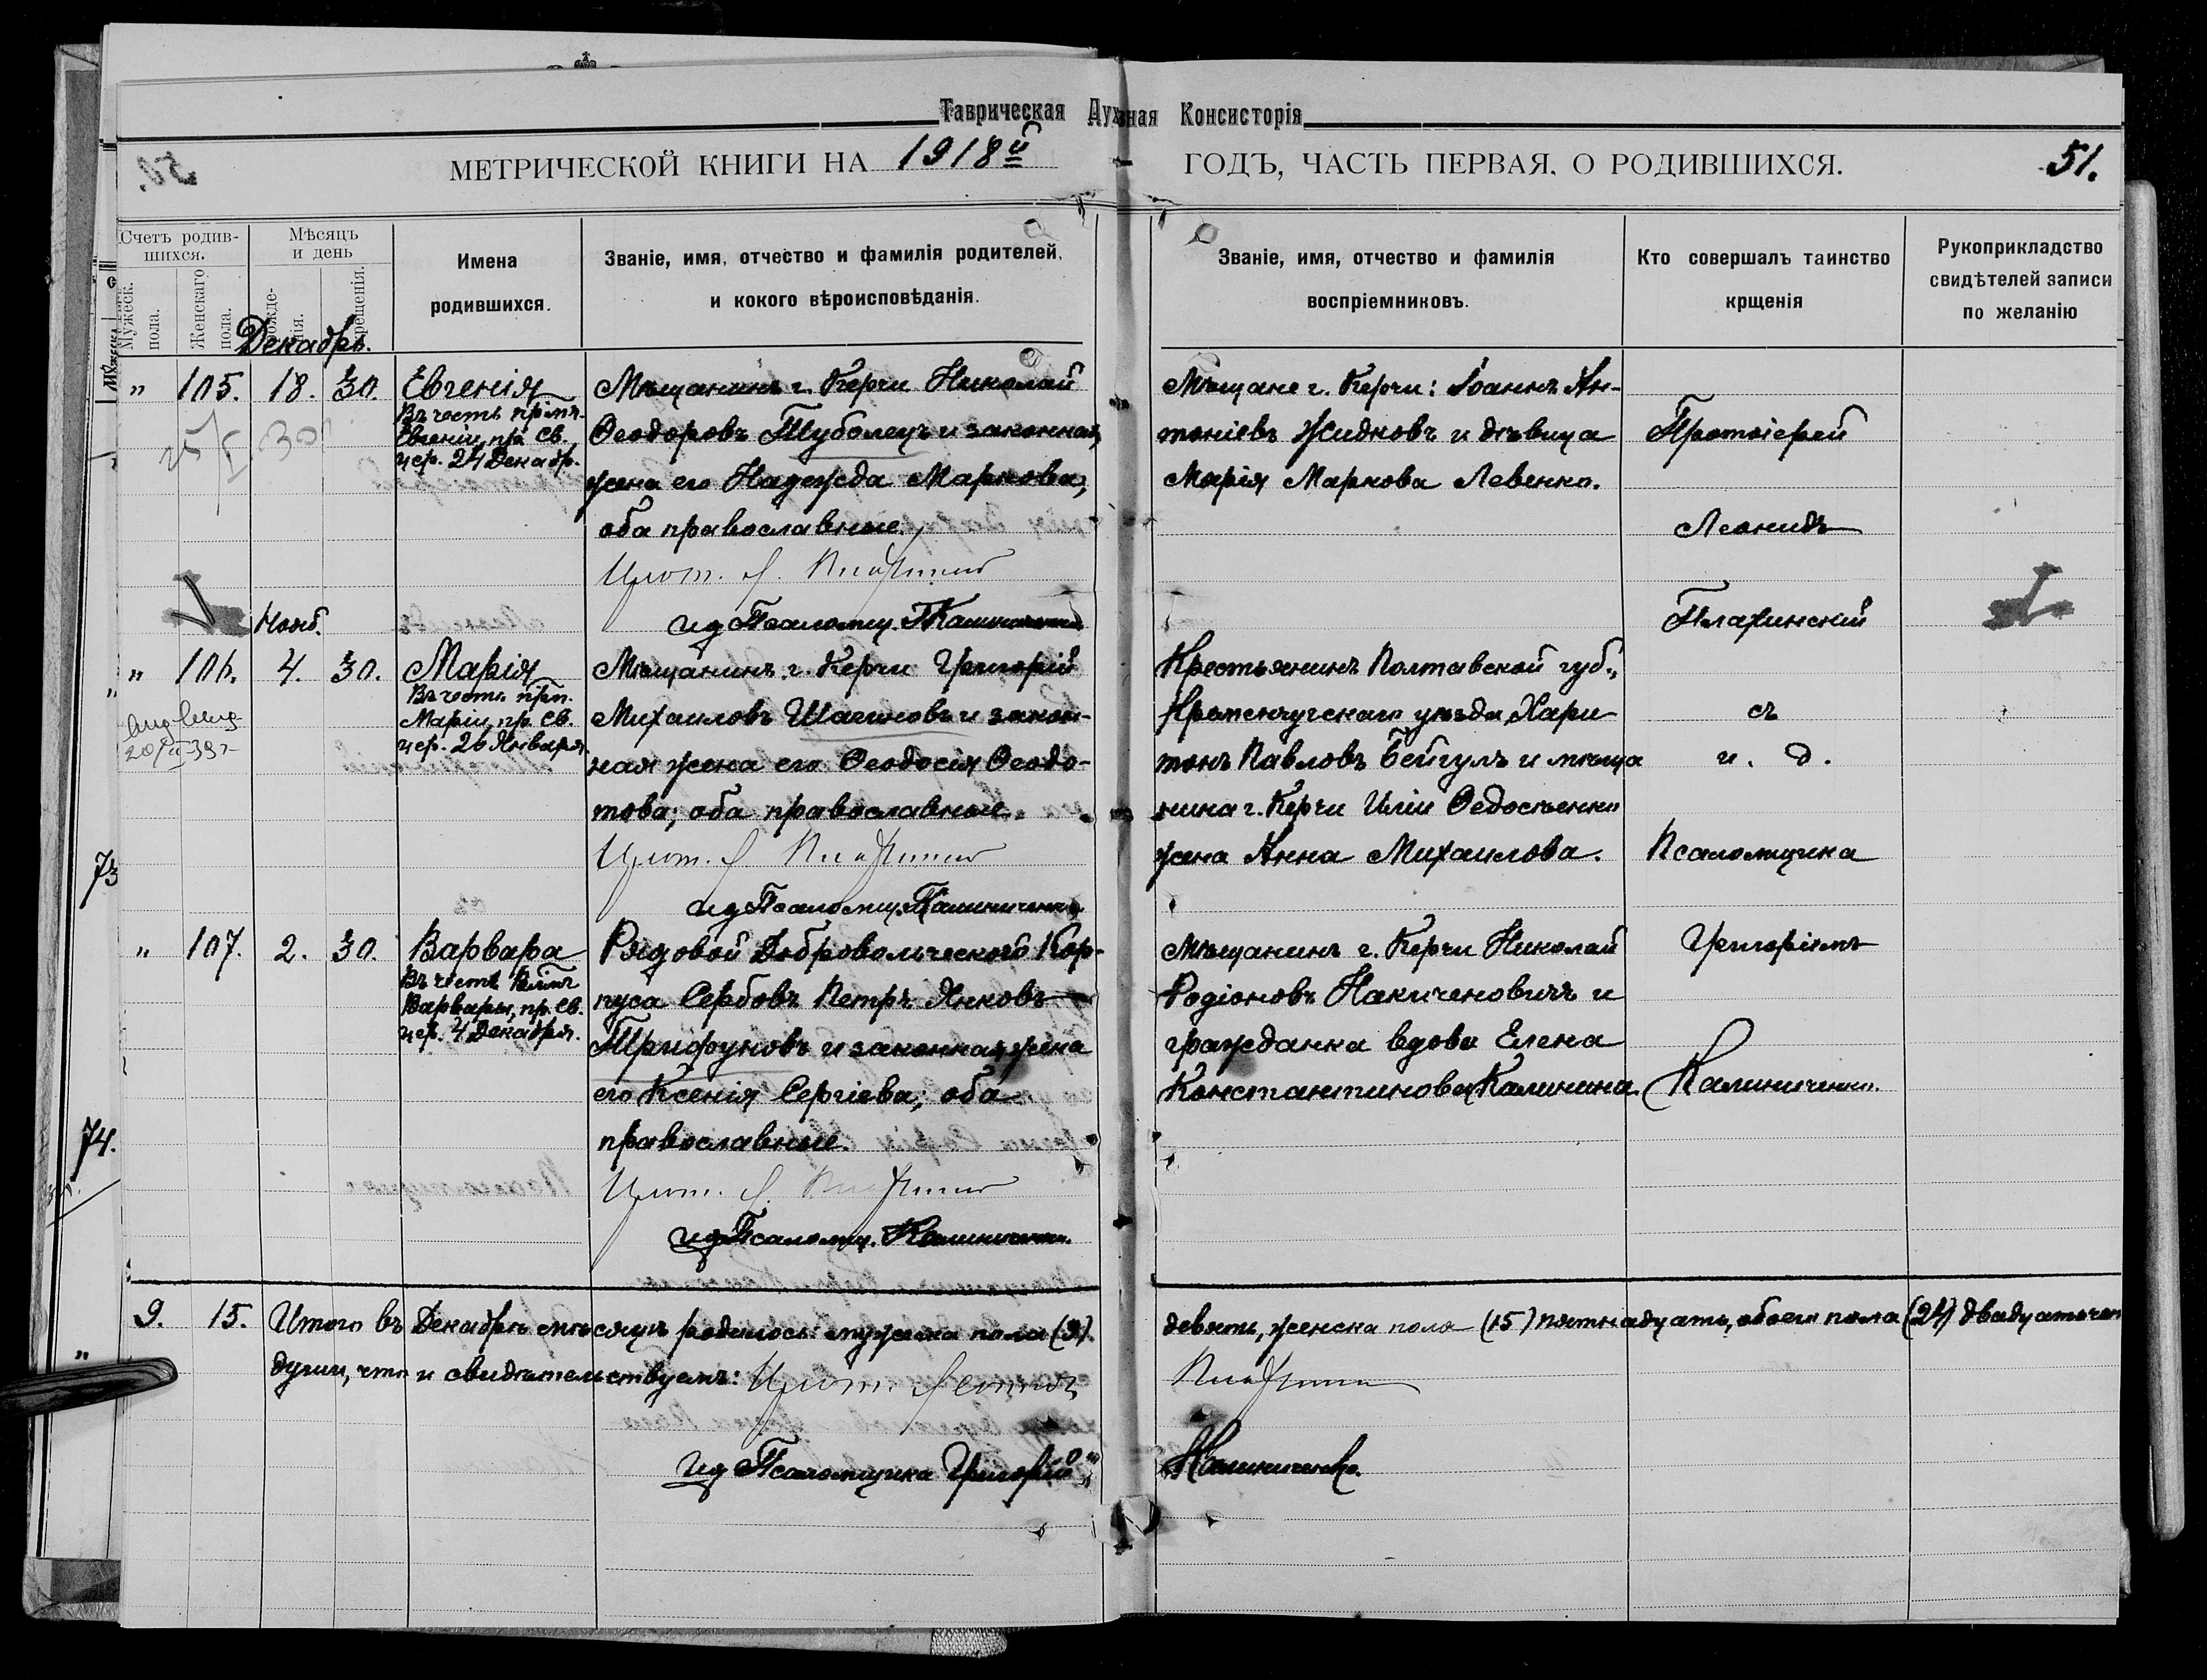 Таврическая Духовная Консисторія
МЕТРИЧЕСКОЙ КНИГИ НА 1918й ГОДЪ, ЧАСТЬ ПЕРВАЯ, О РОДИВШИХСЯ.
51.
Счетъ родив-
шихся.
Мужеск.
пола.
Женскаго
пола.
Мѣсяцъ
и день
рожде-
нія.
крещенія.
Имена
родившихся.
Званіе, имя, отчество и фамилія родителей,
и кокого вѣроисповѣданія.
Званіе, имя, отчество и фамилія
воспріемниковъ.
Кто совершалъ таинство
крщенія
Рукоприкладство
свидѣтелей записи
по желанію
Декабрь.
" 105. 18. 30. Евгенія
Въ честь прпмч.
Евгеніи, пр. св.
цер. 24 Декабр.
Мѣщанинъ г. Керчи Николай
Ѳеодоровъ Туболецъ и законная
жена его Надежда Маркова,
оба православные.
Прот. Л.
ид Псаломщ. Г Калиниченко
Мѣщане г. Керчи: Іоаннъ Ан-
тоніевъ Жидковъ и дѣвица
Марія Маркова Левенко.
Протоіерей
Леонидъ
Плахинскій
съ
и. д.
Псаломщика
Григоріемъ
Калиниченко.
Нояб.
" 106. 4. 30. Марія
Въ честь прп.
Маріи, пр. св.
цер. 26 Января.
Мѣщанинъ г. Керчи Григорій
Михаиловъ Шагиновъ и закон-
ная жена его Ѳеодосія Ѳеодо-
това; оба православные.
Прот. Л.
ид Псаломщ. Г Калиниченко
Крестьянинъ Полтавской губ.,
Кременчугскаго уѣзда, Хари-
тонъ Павловъ Бейгулъ и мѣща
нина г. Керчи Иліи Ѳедосѣенко
жена Анна Михаилова.
73
" 107. 2. 30. Варвара
Въ честь Влмч
Варвары, пр. св.
цер. 4 Декабря.
Рядовой Добровольческаго Кор-
пуса Сербовъ Петръ Янковъ
Трифуновъ и законная жена
его Ксенія Сергіева; оба
православные.
Прот. Л.
ид Псаломщ. Калиниченко.
Мѣщанинъ г. Керчи Николай
Родіоновъ Накиченовичъ и
гражданка вдова Елена
Константинова Калинина.
74.
9. 15. Итого въ Декабрѣ мѣсяцѣ родилось: мужеска пола (9) девять, женска пола (15) пятнадцать, обоего пола (24) двадцать чет
души, что и свидѣтельствуемъ: Прот. Леонидъ
ид Псаломщика Григорій Калиниченко.